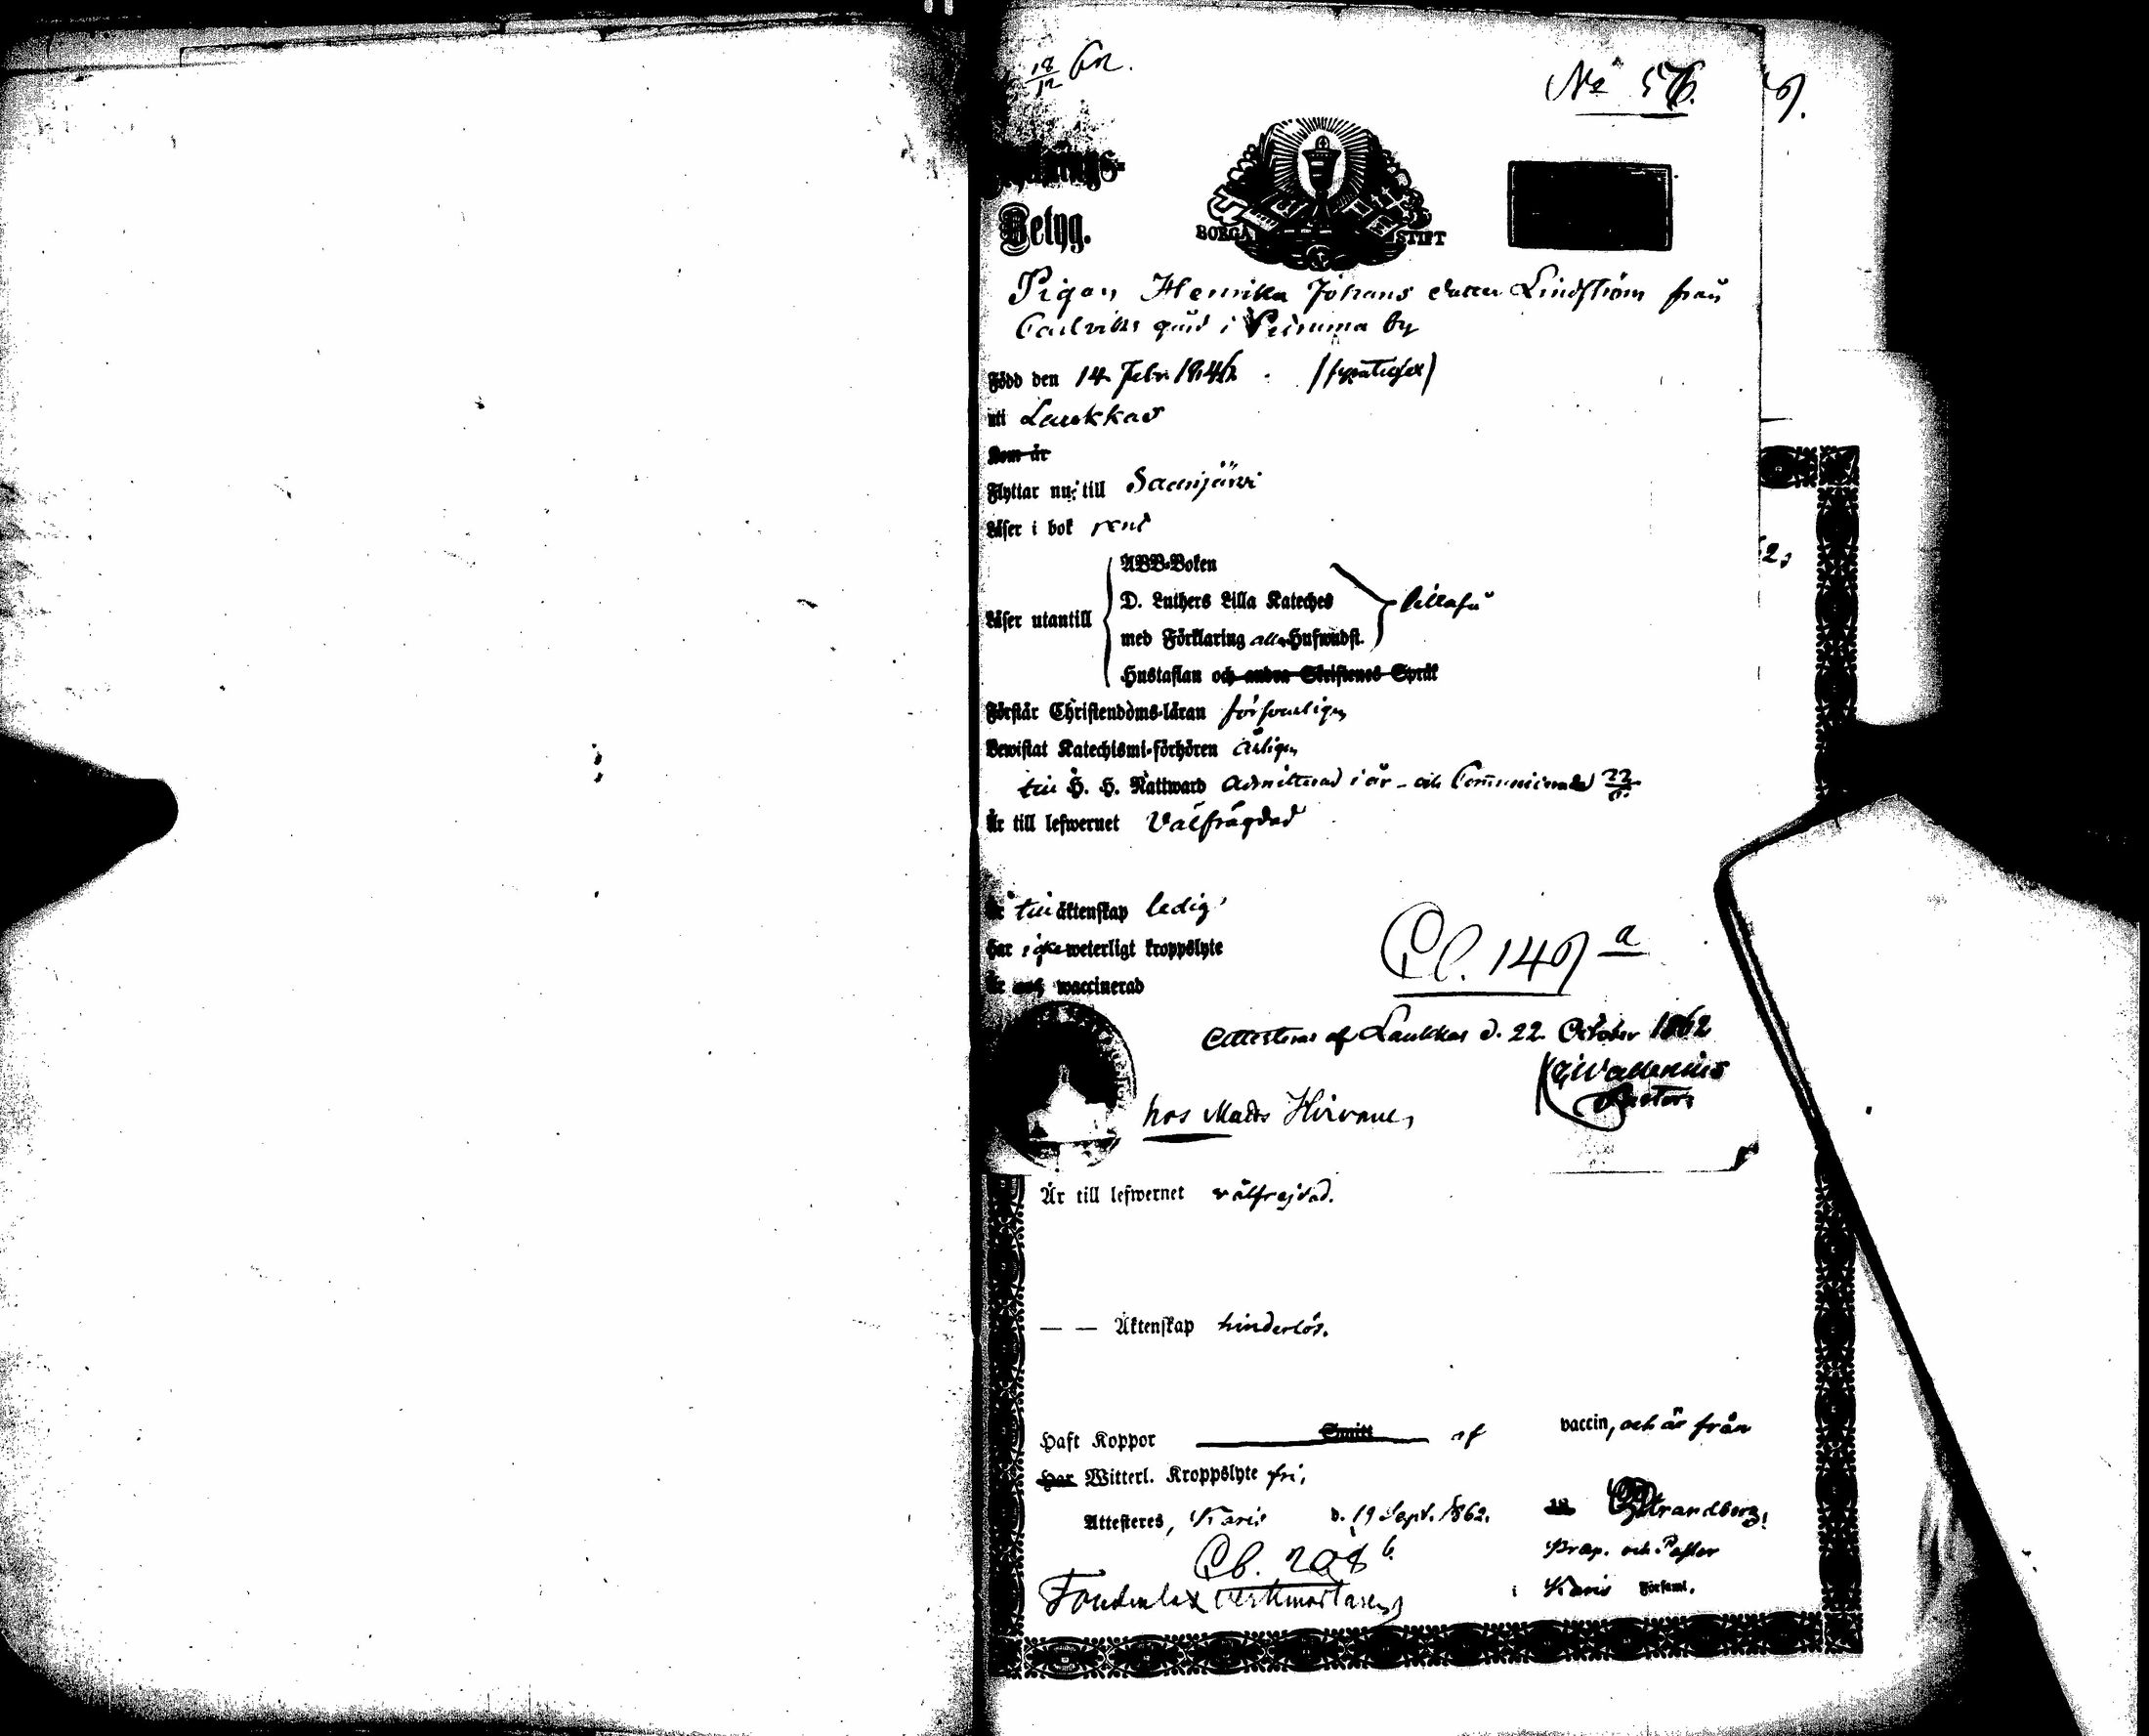 18/12 62.
No 58.
Flyttnings-
Betyg.
BORGÅ STIFT
Pigan Henrika Johans dotter Lindström från
gård i by
Född den 14 Febr. 1842.
uti Laukkas
Kom år
Flyttar nu till Saarijärvi
Läser i bok rent
ABC-Boken
D. Luthers Lilla Kateches
Läser utantill
med Förklaring alla Hufwudst.
Hustaflan och andra Skriftenes Språk
Förstår Christendoms-läran försvarligen
Bewistat Katechismi-förhören årligen
till H. H. Nattward admitterad i år - och Communicerade
Är till lefwernet Välfrägdad
Är till äktenskap ledig
Har icke weterligt kroppslyte
Är waccinerad
Pl. 149 a
Attesteras af Laukkas d. 22 October 1862
Wallenius
Pastor
hos Matts Hirvonen
Är till lefwernet välfrejdad.
— — Äktenskap hinderlös.
Haft Koppor Smitt af vaccin, och är från
Har Witterl. Kroppslyte fri,
Attesteres, Karis d. 19 Sept. 1862. Strandberg,
Pb. 208 b.
Prap. och Pastor
i Karis Församl.